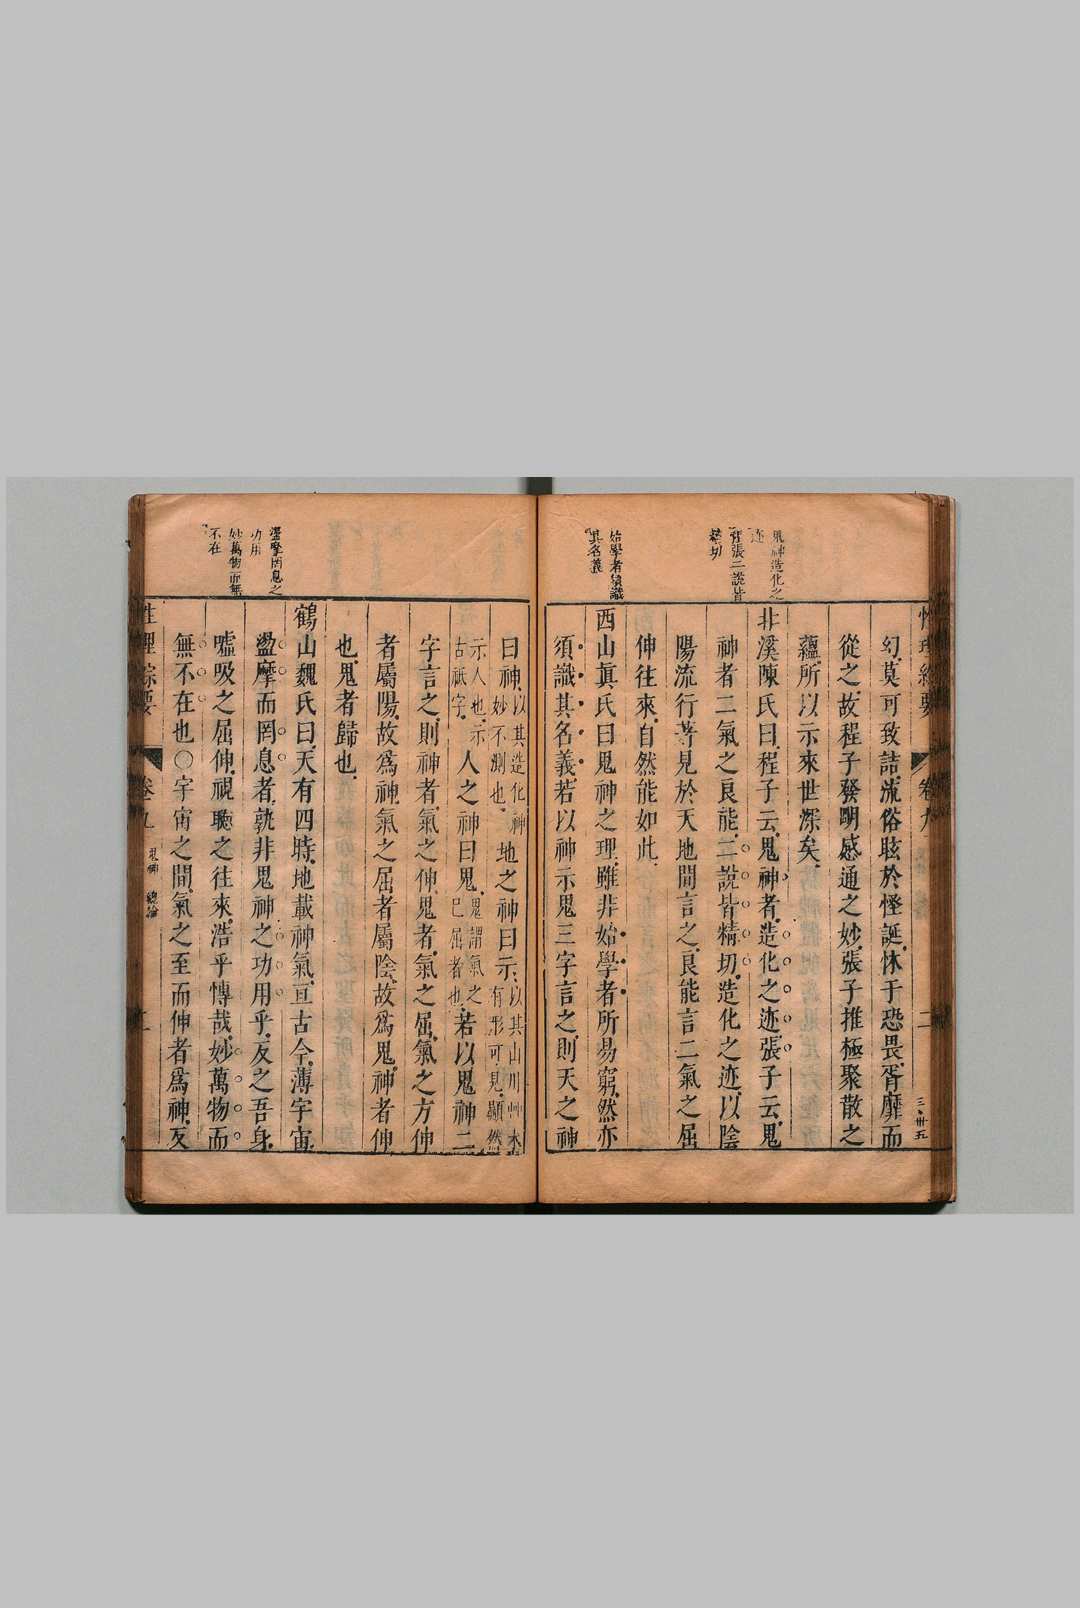 性理綜要
卷九
二
三、卅五
鬼神造化之
迹
程張二說皆
精切
始學者須識
其名義
幻莫可致詰流俗眩於怪誕怵于恐畏胥靡而
從之故程子發明感通之妙張子推極聚散之
蘊所以示來世深矣
北溪陳氏曰程子云鬼神者造化之迹張子云鬼
神者二氣之良能二說皆精切造化之迹以陰
陽流行著見於天地間言之良能言二氣之屈
伸往來自然能如此
西山眞氏曰鬼神之理雖非始學者所易窮然亦
須識其名義若以神示鬼三字言之則天之神
曰神以其造化神妙不測也地之神曰示以其山川艸木有形可見顯然
示人也示古祇字人之神曰鬼鬼謂氣之已屈者也若以鬼神二
字言之則神者氣之伸鬼者氣之屈氣之方伸
者屬陽故爲神氣之屈者屬陰故爲鬼神者伸
也鬼者歸也
鶴山魏氏曰天有四時地載神氣亘古今薄宇宙
盪摩而罔息者孰非鬼神之功用乎反之吾身
噓吸之屈伸視聽之往來浩乎博哉妙萬物而
無不在也○宇宙之間氣之至而伸者爲神反
盪摩罔息之
功用
妙萬物而無
不在
性理綜要
卷九
鬼神 總論
二